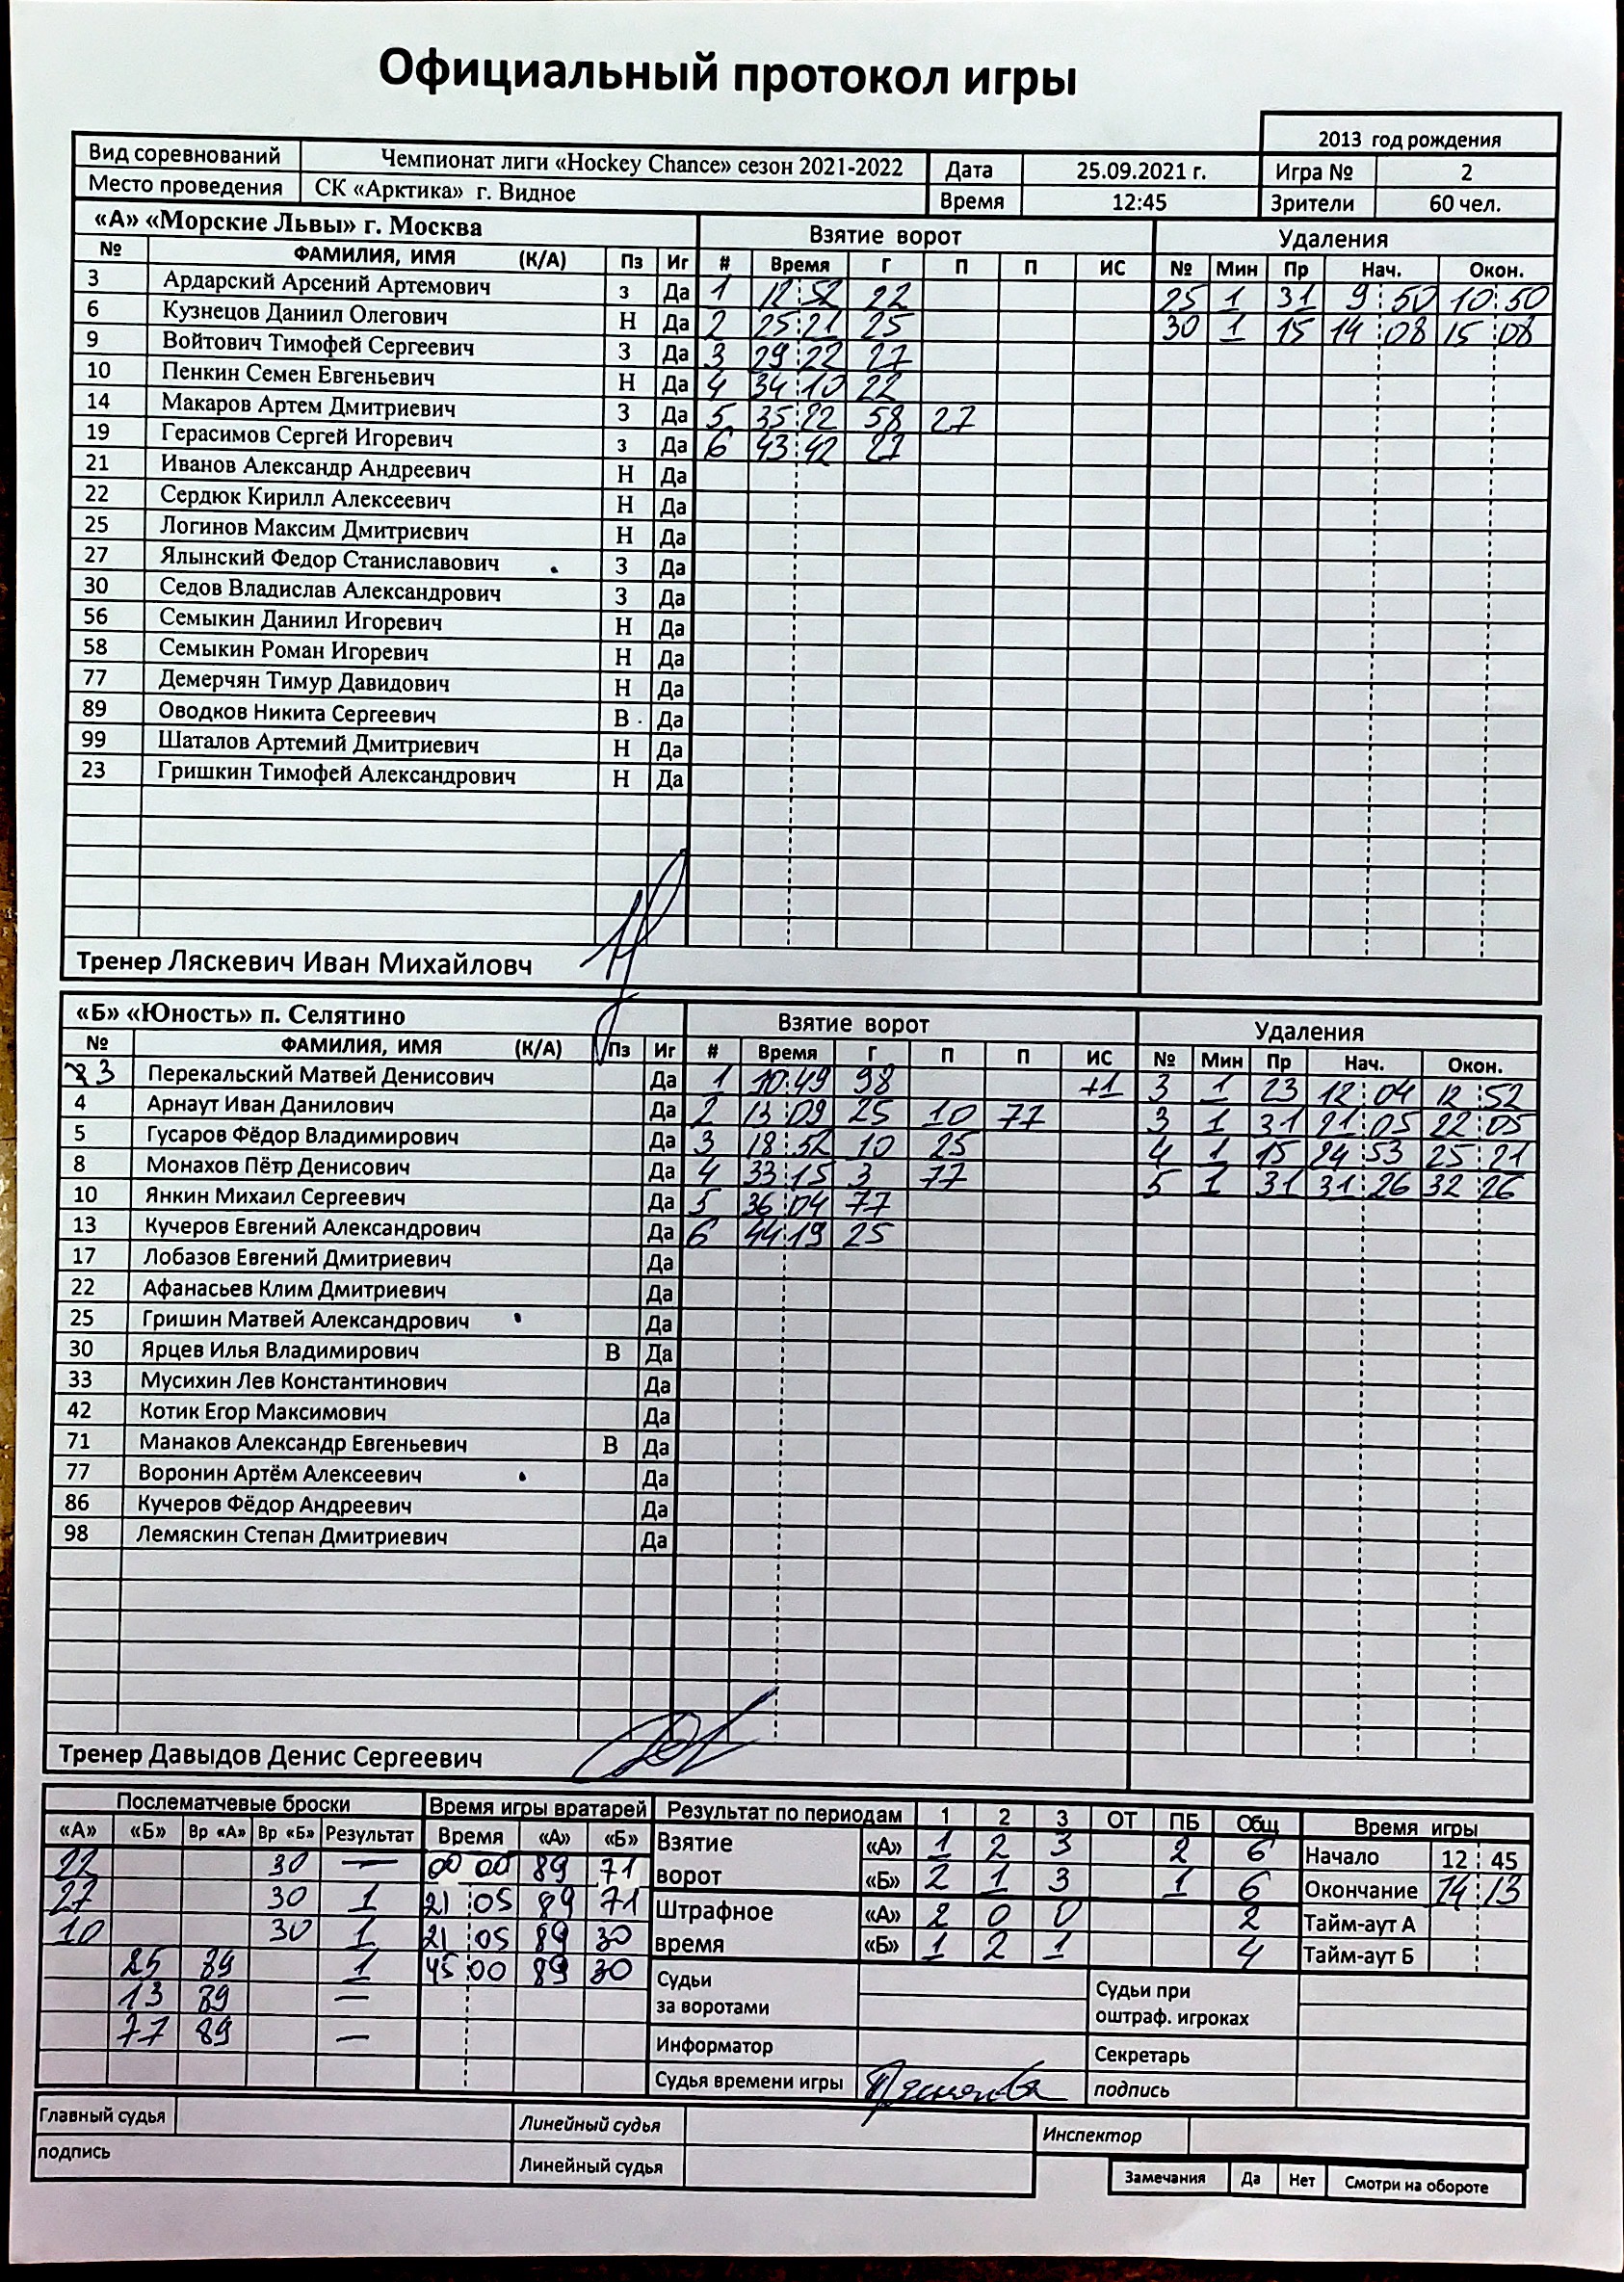 Официальный протокол игры
2013 год рождения
Вид соревнований Чемпионат лиги «Hockey Chance» сезон 2021-2022 Дата 25.09.2021 г. Игра № 2
Место проведения СК «Арктика» г. Видное Время 12:45 Зрители 60 чел.
«А» «Морские Львы» г. Москва Взятие ворот Удаления
№ ФАМИЛИЯ, ИМЯ (К/А) Пз Иг # Время Г П П ИС № Мин Пр Нач. Окон.
3 Ардарский Арсений Артемович з Да 1 12 52 22 25 1 31 9 50 10 50
6 Кузнецов Даниил Олегович Н Да 2 25 21 25 30 1 15 14 08 15 08
9 Войтович Тимофей Сергеевич З Да 3 29 22 27
10 Пенкин Семен Евгеньевич Н Да 4 34 10 22
14 Макаров Артем Дмитриевич З Да 5 35 22 58 27
19 Герасимов Сергей Игоревич з Да 6 43 42 27
21 Иванов Александр Андреевич Н Да
22 Сердюк Кирилл Алексеевич Н Да
25 Логинов Максим Дмитриевич Н Да
27 Ялынский Федор Станиславович З Да
30 Седов Владислав Александрович З Да
56 Семыкин Даниил Игоревич Н Да
58 Семыкин Роман Игоревич Н Да
77 Демерчян Тимур Давидович Н Да
89 Оводков Никита Сергеевич В Да
99 Шаталов Артемий Дмитриевич Н Да
23 Гришкин Тимофей Александрович Н Да
Тренер Ляскевич Иван Михайловч
«Б» «Юность» п. Селятино Взятие ворот Удаления
№ ФАМИЛИЯ, ИМЯ (К/А) Пз Иг # Время Г П П ИС № Мин Пр Нач. Окон.
3 Перекальский Матвей Денисович Да 1 10 49 98 +1 3 1 23 12 04 12 52
4 Арнаут Иван Данилович Да 2 13 09 25 10 77 3 1 31 21 05 22 05
5 Гусаров Фёдор Владимирович Да 3 18 52 10 25 4 1 15 24 53 25 21
8 Монахов Пётр Денисович Да 4 33 15 3 77 5 1 31 31 26 32 26
10 Янкин Михаил Сергеевич Да 5 36 04 77
13 Кучеров Евгений Александрович Да 6 44 19 25
17 Лобазов Евгений Дмитриевич Да
22 Афанасьев Клим Дмитриевич Да
25 Гришин Матвей Александрович Да
30 Ярцев Илья Владимирович В Да
33 Мусихин Лев Константинович Да
42 Котик Егор Максимович Да
71 Манаков Александр Евгеньевич В Да
77 Воронин Артём Алексеевич Да
86 Кучеров Фёдор Андреевич Да
98 Лемяскин Степан Дмитриевич Да
Тренер Давыдов Денис Сергеевич
Послематчевые броски Время игры вратарей Результат по периодам 1 2 3 ОТ ПБ Общ Время игры
«А» «Б» Вр «А» Вр «Б» Результат Время «А» «Б» Взятие ворот «А» 1 2 3 2 6 Начало 12 45
22 30 — 00 00 89 71 «Б» 2 1 3 1 6 Окончание 14 13
27 30 1 21 05 89 71 Штрафное время «А» 2 0 0 2 Тайм-аут А
10 30 1 21 05 89 30 «Б» 1 2 1 4 Тайм-аут Б
25 89 1 45 00 89 30 Судьи за воротами Судьи при оштраф. игроках
13 89 —
77 89 — Информатор Секретарь
Судья времени игры подпись
Главный судья Линейный судья Инспектор
подпись Линейный судья Замечания Да Нет Смотри на обороте